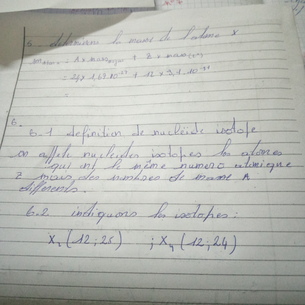 5. determiner la masse de l'atome X
m atome = A x masse + Z x masse
= 24 x 1,67.10⁻²⁷ + 12 x 9,1.10⁻³¹
=
6.
6.1 definition de nucléide isotope
on appelle nucleides isotopes les atomes
qui ont le même numero atomique
Z mais des nombres de masse A
differents.
6.2 indiquons les isotopes :
(12 ; 25) ; X₄ (12 ; 24)